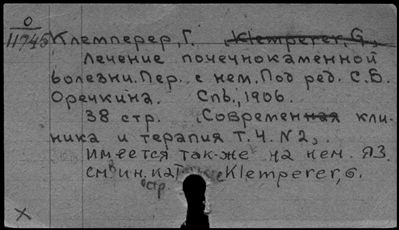 О
11945 Клемперер, Г. Klemperer, G.,
Лечение почечнокаменной
болезни. Пер. с нем. Под ред. С.Б.
Оречкина. Спб., 1906.
38 стр. (Современная кли-
ника и терапия Т. 4. N2).
Имеется также на нем. яз.
см. ин. ка Klemperer, G.
стр.
X